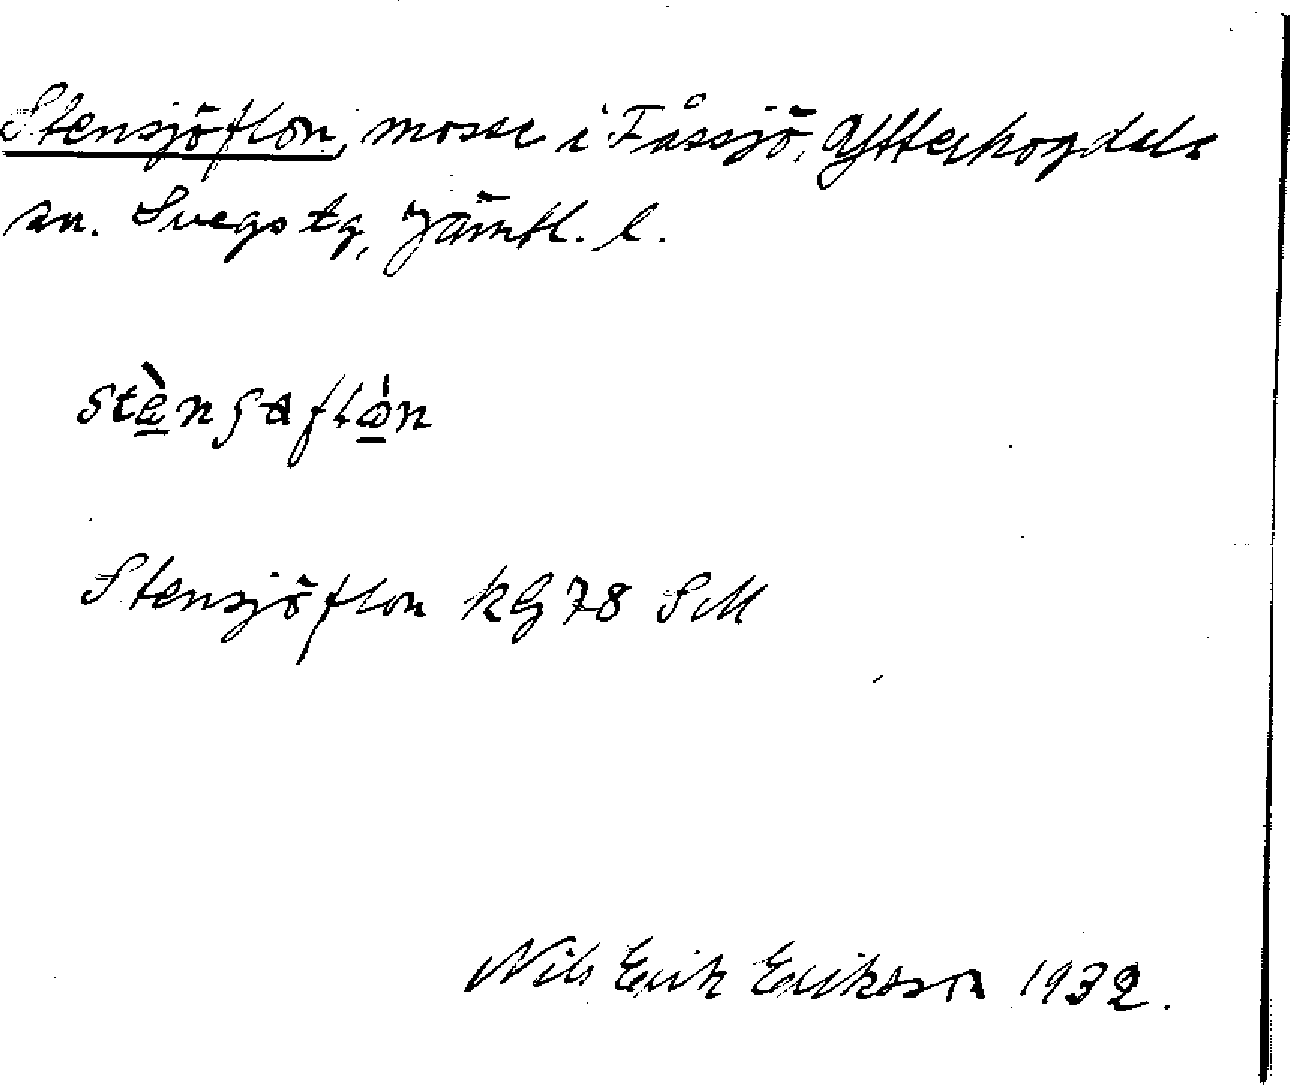 Stensjöflon, mosse i Fåssjö, Ytterhogdals
sn. Svegs tg, Jämtl. l.
stènʃaflòn
Stensjöflon kG78 SM
Nils Erik Eriksson 1932.